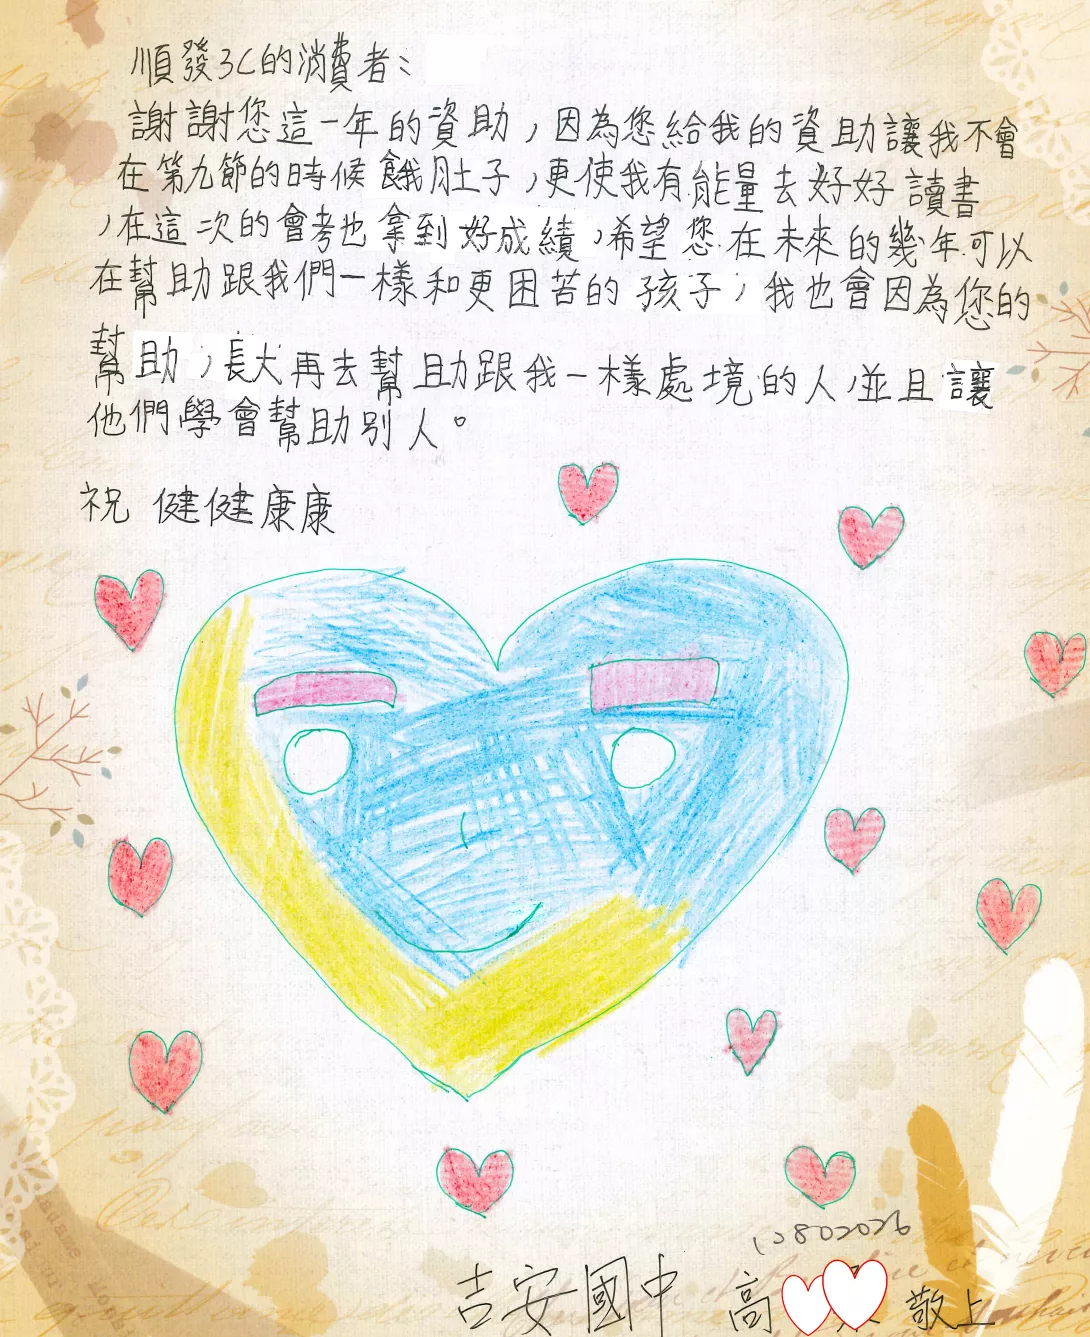 順發3C的消費者：
謝謝您這一年的資助，因為您給我的資助讓我不會
在第九節的時候餓肚子，更使我有能量去好好讀書
，在這次的會考也拿到好成績，希望您在未來的幾年可以
在幫助跟我們一樣和更困苦的孩子，我也會因為您的
幫助，長大再去幫助跟我一樣處境的人，並且讓
他們學會幫助別人。
祝 健健康康
12802026
吉安國中 高 敬上